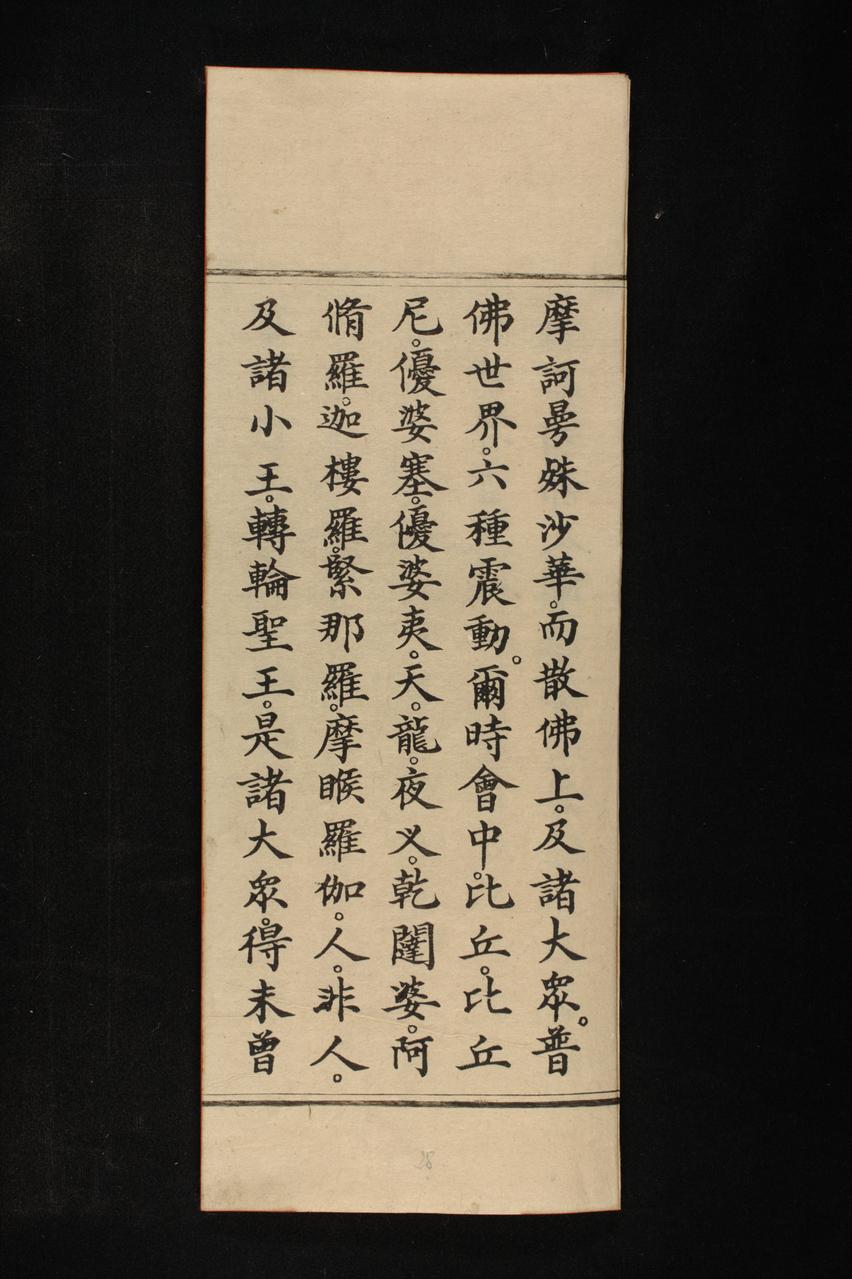 摩訶曼殊沙華。而散佛上。及諸大眾。普
佛世界。六種震動。爾時會中。比丘。比丘
尼。優婆塞。優婆夷。天。龍。夜义。乾闥婆。阿
脩羅。迦樓羅。緊那羅。摩睺羅伽。人。非人。
及諸小王。轉輪聖王。是諸大眾。得未曾
28